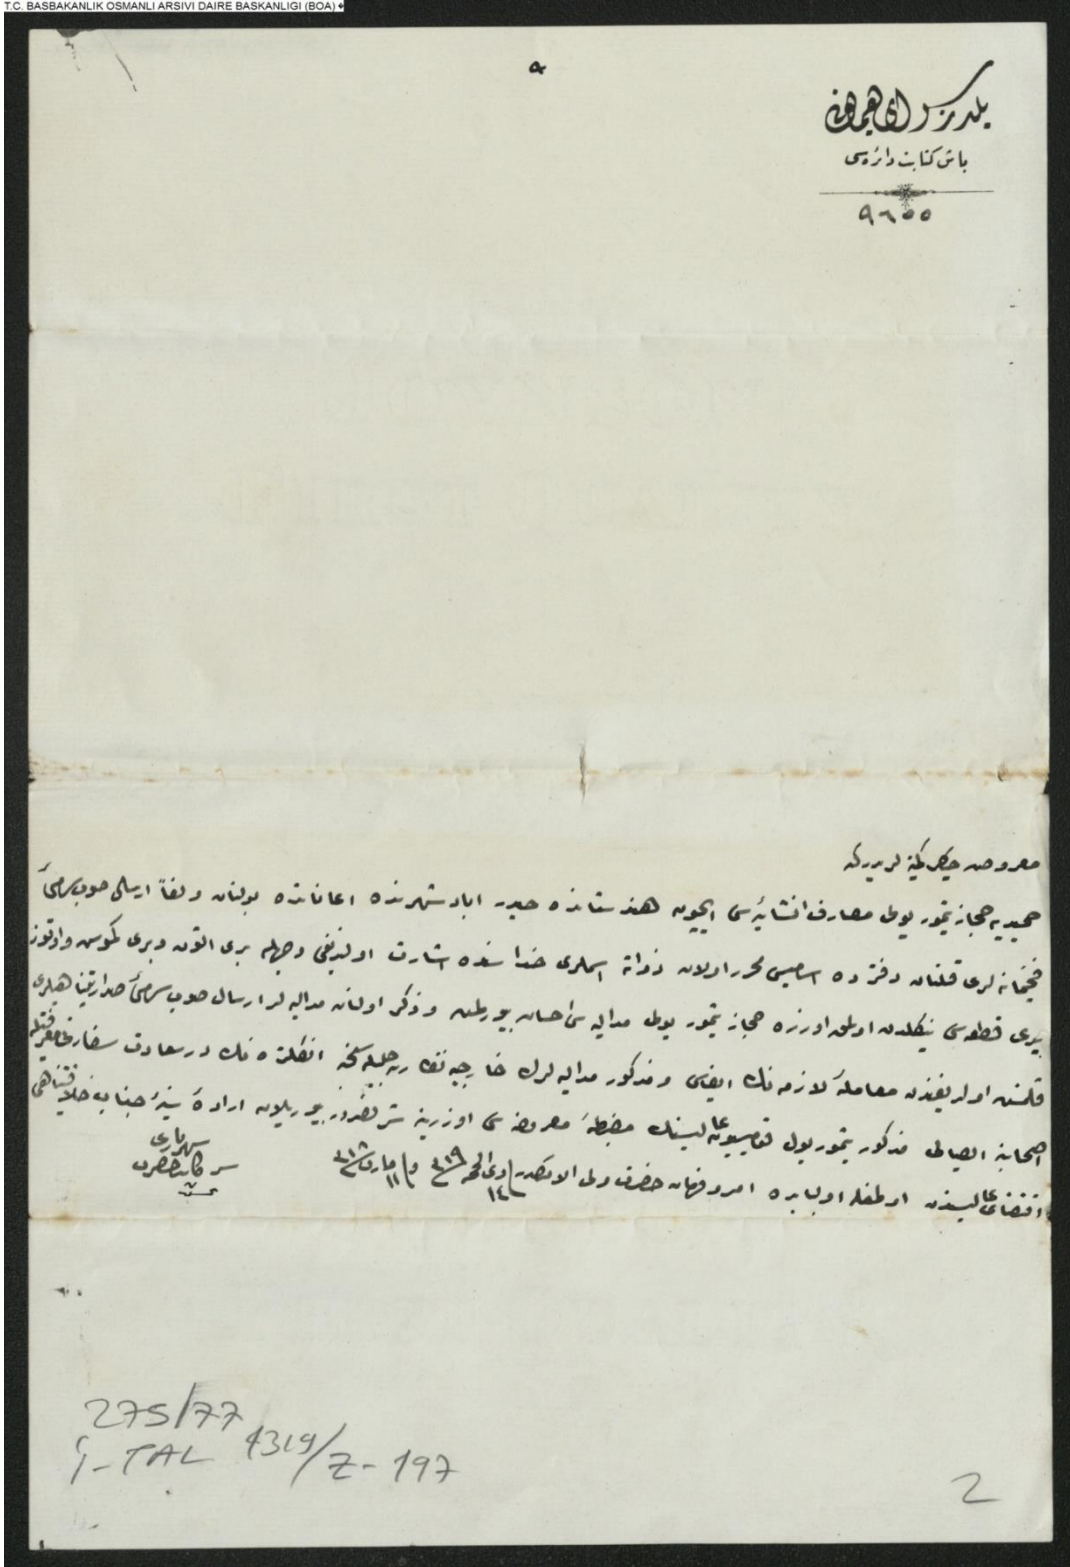 T.C. BASBAKANLIK OSMANLI ARSIVI DAIRE BASKANLIGI (BOA)
يلديز سراى همايونى
باش كتابت دائره سى
٩٦٥٥
معروض چاكر كمينه لريدر كه
حميديه حجاز تيمور يولى مصارف انشائيه سى ايچون هندستانده حيدر اباد شهرنده اعاناتده بولنان ولفاً ارسال صوب سامئ
فخيمانه لرى قلنان دفترده اساميسى محرر اولان ذواته اسملرى حذا سنده اشارت اولنديغى وجهله برى التون وبرى كموش واوتوز
برى قطعه سى نيكلدن اولمق اوزره حجاز تيمور يولى مداليه سى احسان بيورلمش وذكر اولنان مداليه لر ارسال صوب سامئ صدارتپناهيلرى
قلنمش اولديغندن معاملۀ لازمه نك ايفاسى ومذكور مداليه لرك خارجيه نظارت جليله سنجه انكلتره نك درسعادت سفارتى معرفتيله
اصحابنه ايصالى مذكور تيمور يول قوميسيون عاليسنك مضبطۀ معروضه سى اوزرينه شرفصدور بيوريلان ارادۀ سنيۀ جناب خلافتپناهى
اقتضاى عاليسندن اولمغله اولبابده امر وفرمان حضرت ولى الامركدر فى ١٤ ذى الحجه ٣١٩ وفى ١١ مارت ٣١٨
سر كاتب حضرت
شهريارى
275/77
İ-TAL 1319/Z-197
2